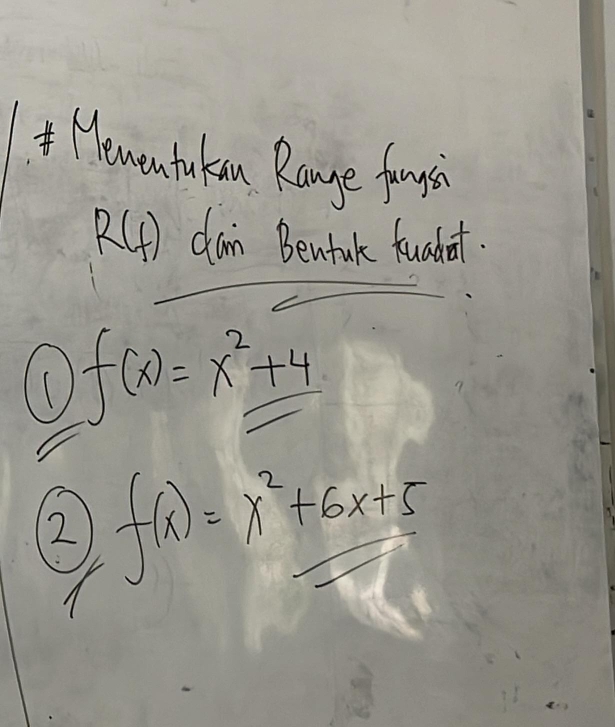 # Menentukan Range fungsi
R(f) dari Bentuk kuadrat.
① f(x) = x² + 4
② f(x) = x² + 6x + 5